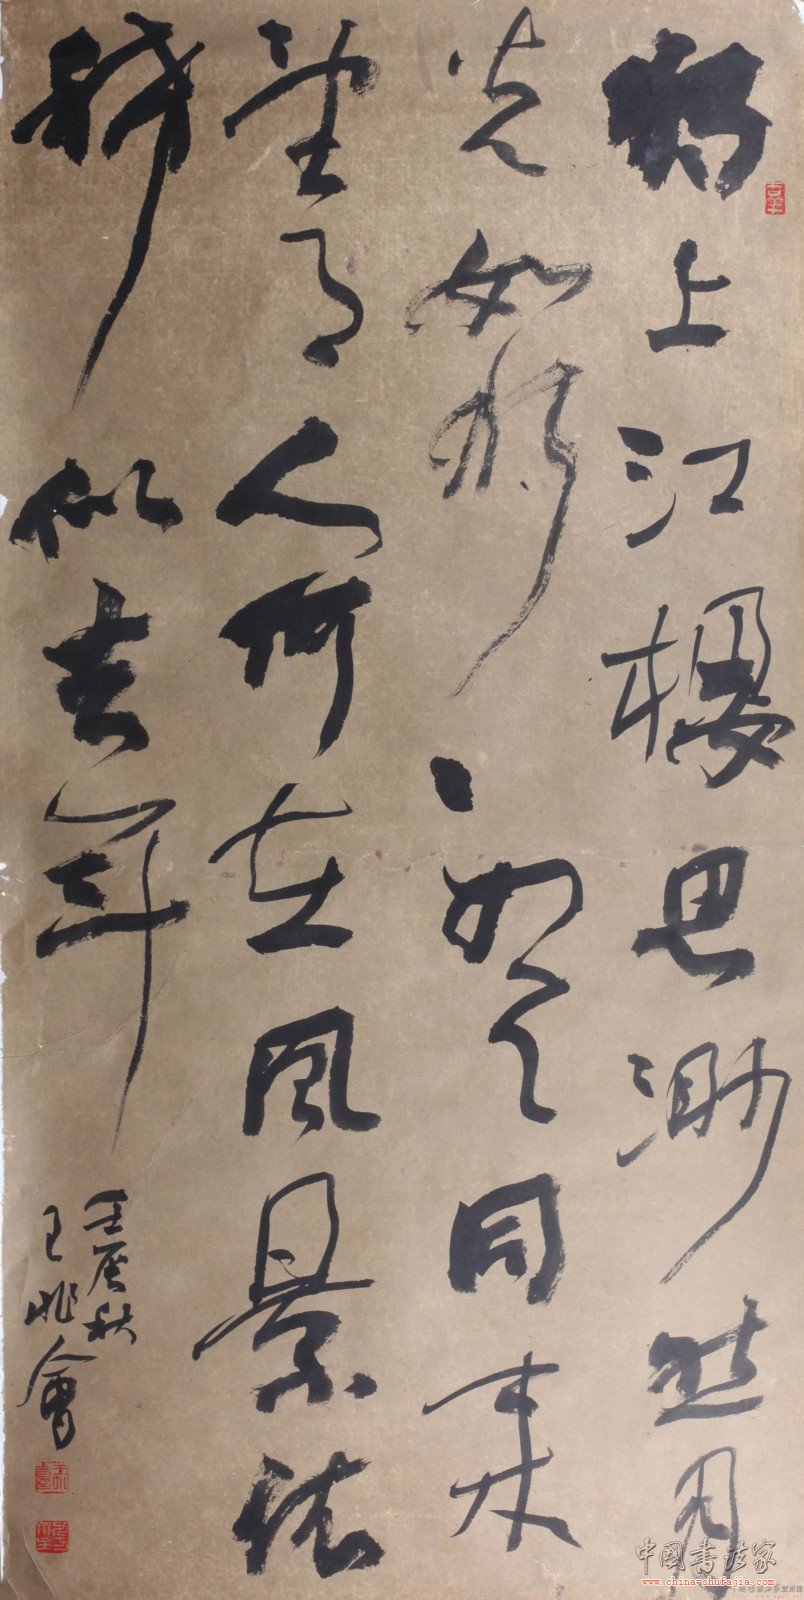 獨上江樓思渺然月
光如水、如天同来
望月人何在風景依
稀似去年
壬辰秋
王兆會
中國書法家
www.china-shufajia.com